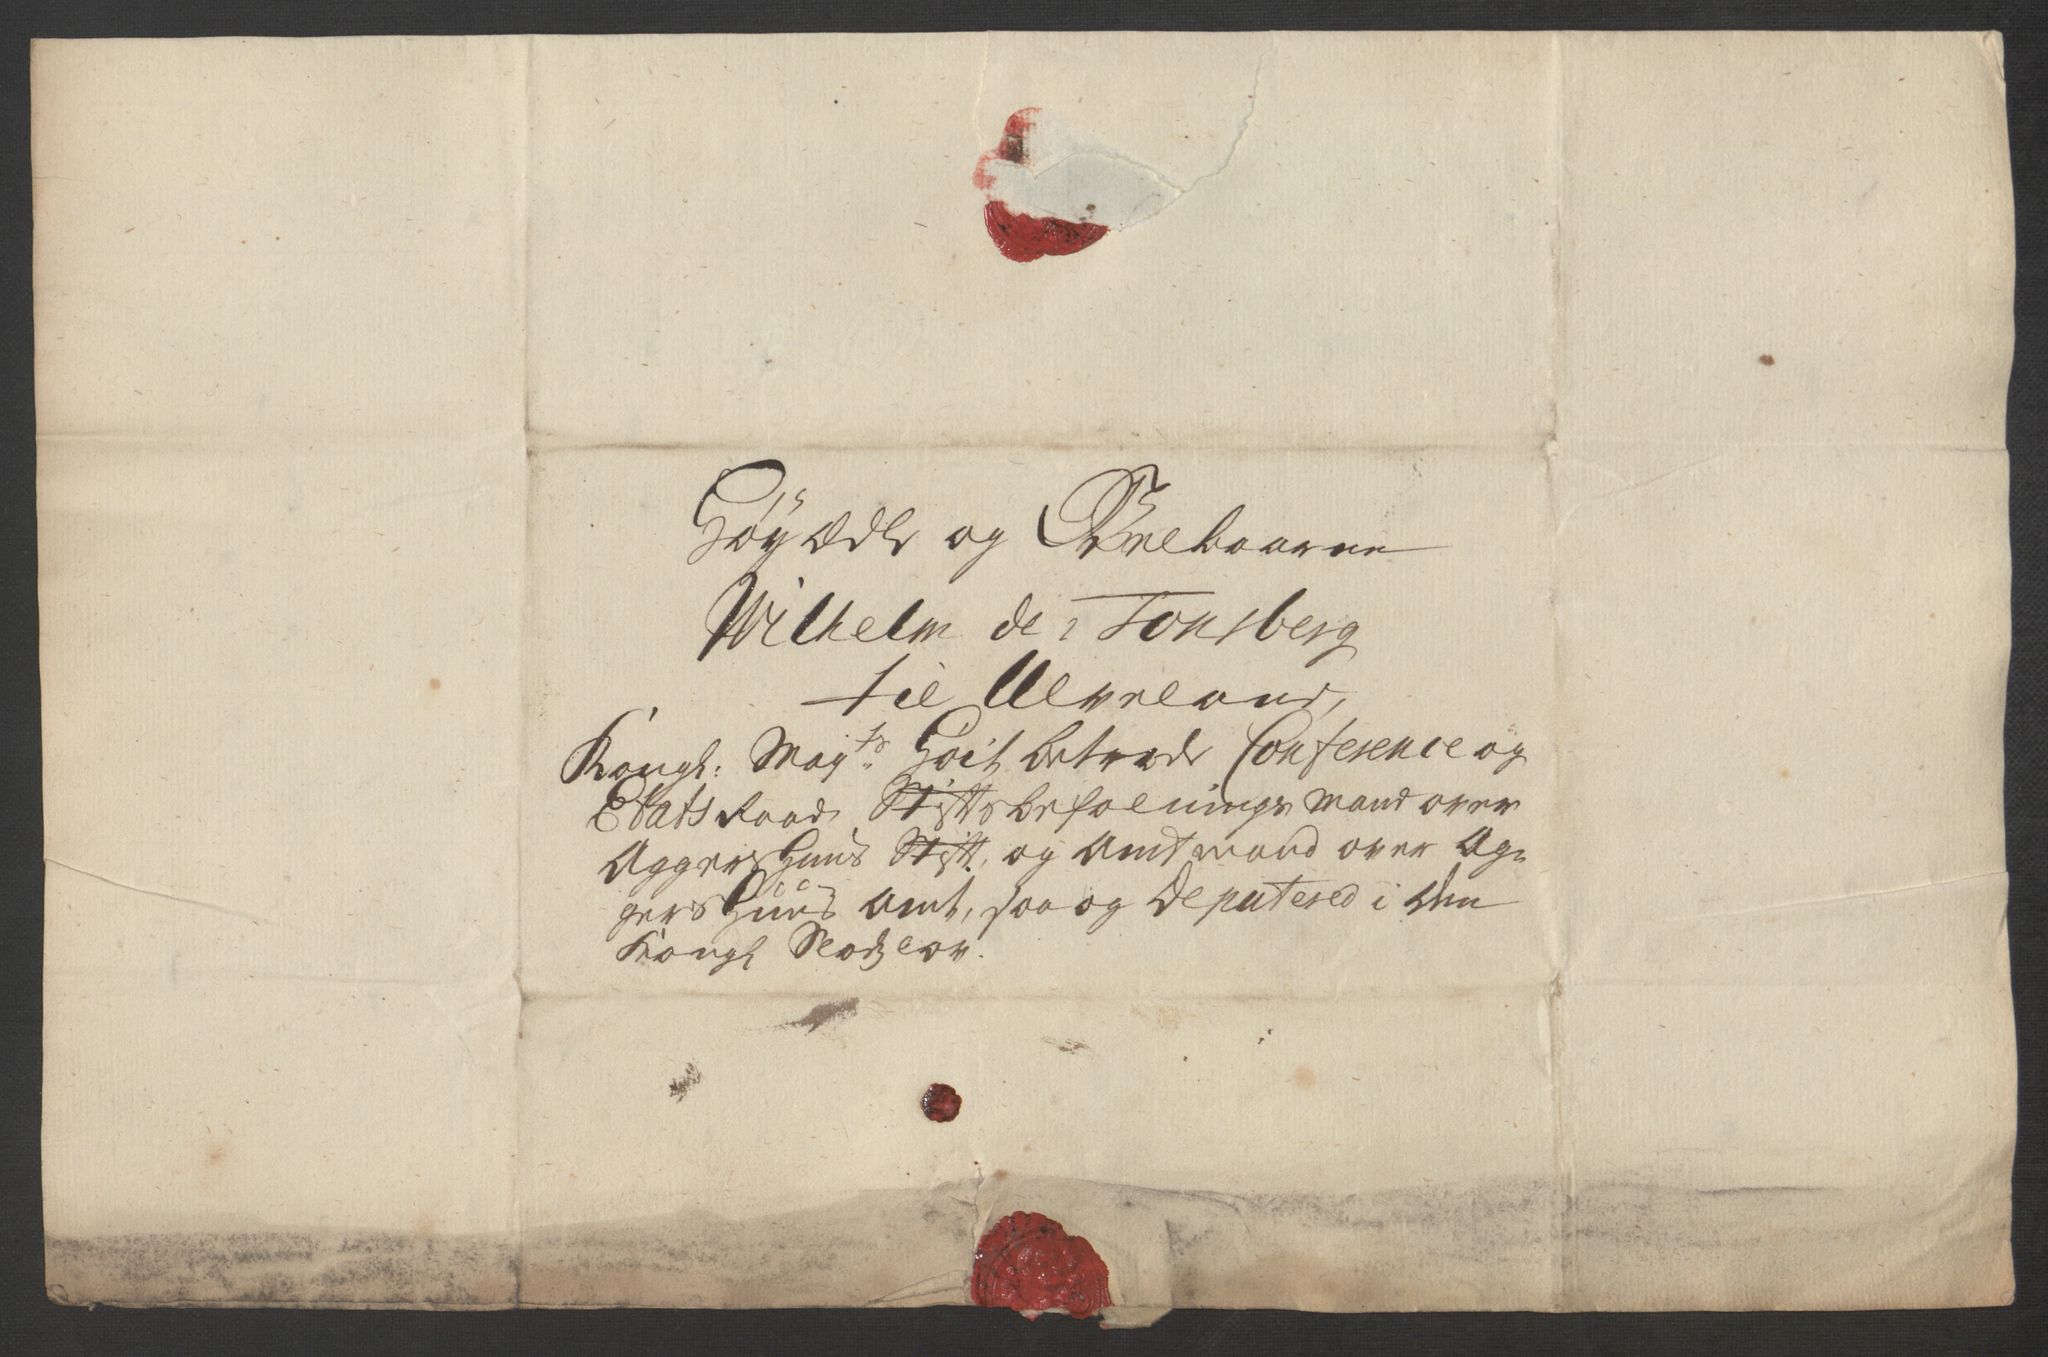 HøyÆdle og Velbaarne
Wilhelm de Tonsberg
til Ulveland,
Kongl: May:ts Høit betroede Conference og
Etats Raad, Stiftsbefalningsmand over
AggersHuus Stift, og Amtmand over Ag-
gersHuus Amt, saa og Deputered i den
Kongl Slodzlov.